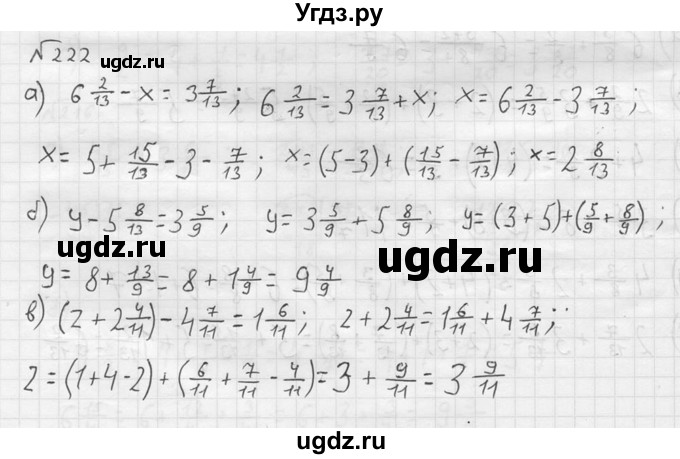 Угдз.ру
№222
ugdz.ru
а) 6 2/13 - x = 3 7/13; 6 2/13 = 3 7/13 + x; x = 6 2/13 - 3 7/13;
x = 5 + 15/13 - 3 - 7/13; x = (5-3) + (15/13 - 7/13); x = 2 8/13
б) y - 5 8/13 = 3 5/9; y = 3 5/9 + 5 8/9; y = (3 + 5) + (5/9 + 8/9);
y = 8 + 13/9 = 8 + 1 4/9 = 9 4/9
ugdz.ru
в) (2 + 2 4/11) - 4 7/11 = 1 6/11; 2 + 2 4/11 = 1 6/11 + 4 7/11;
2 = (1+4-2) + (6/11 + 7/11 - 4/11) = 3 + 9/11 = 3 9/11
ugdz.ru
ugdz.ru